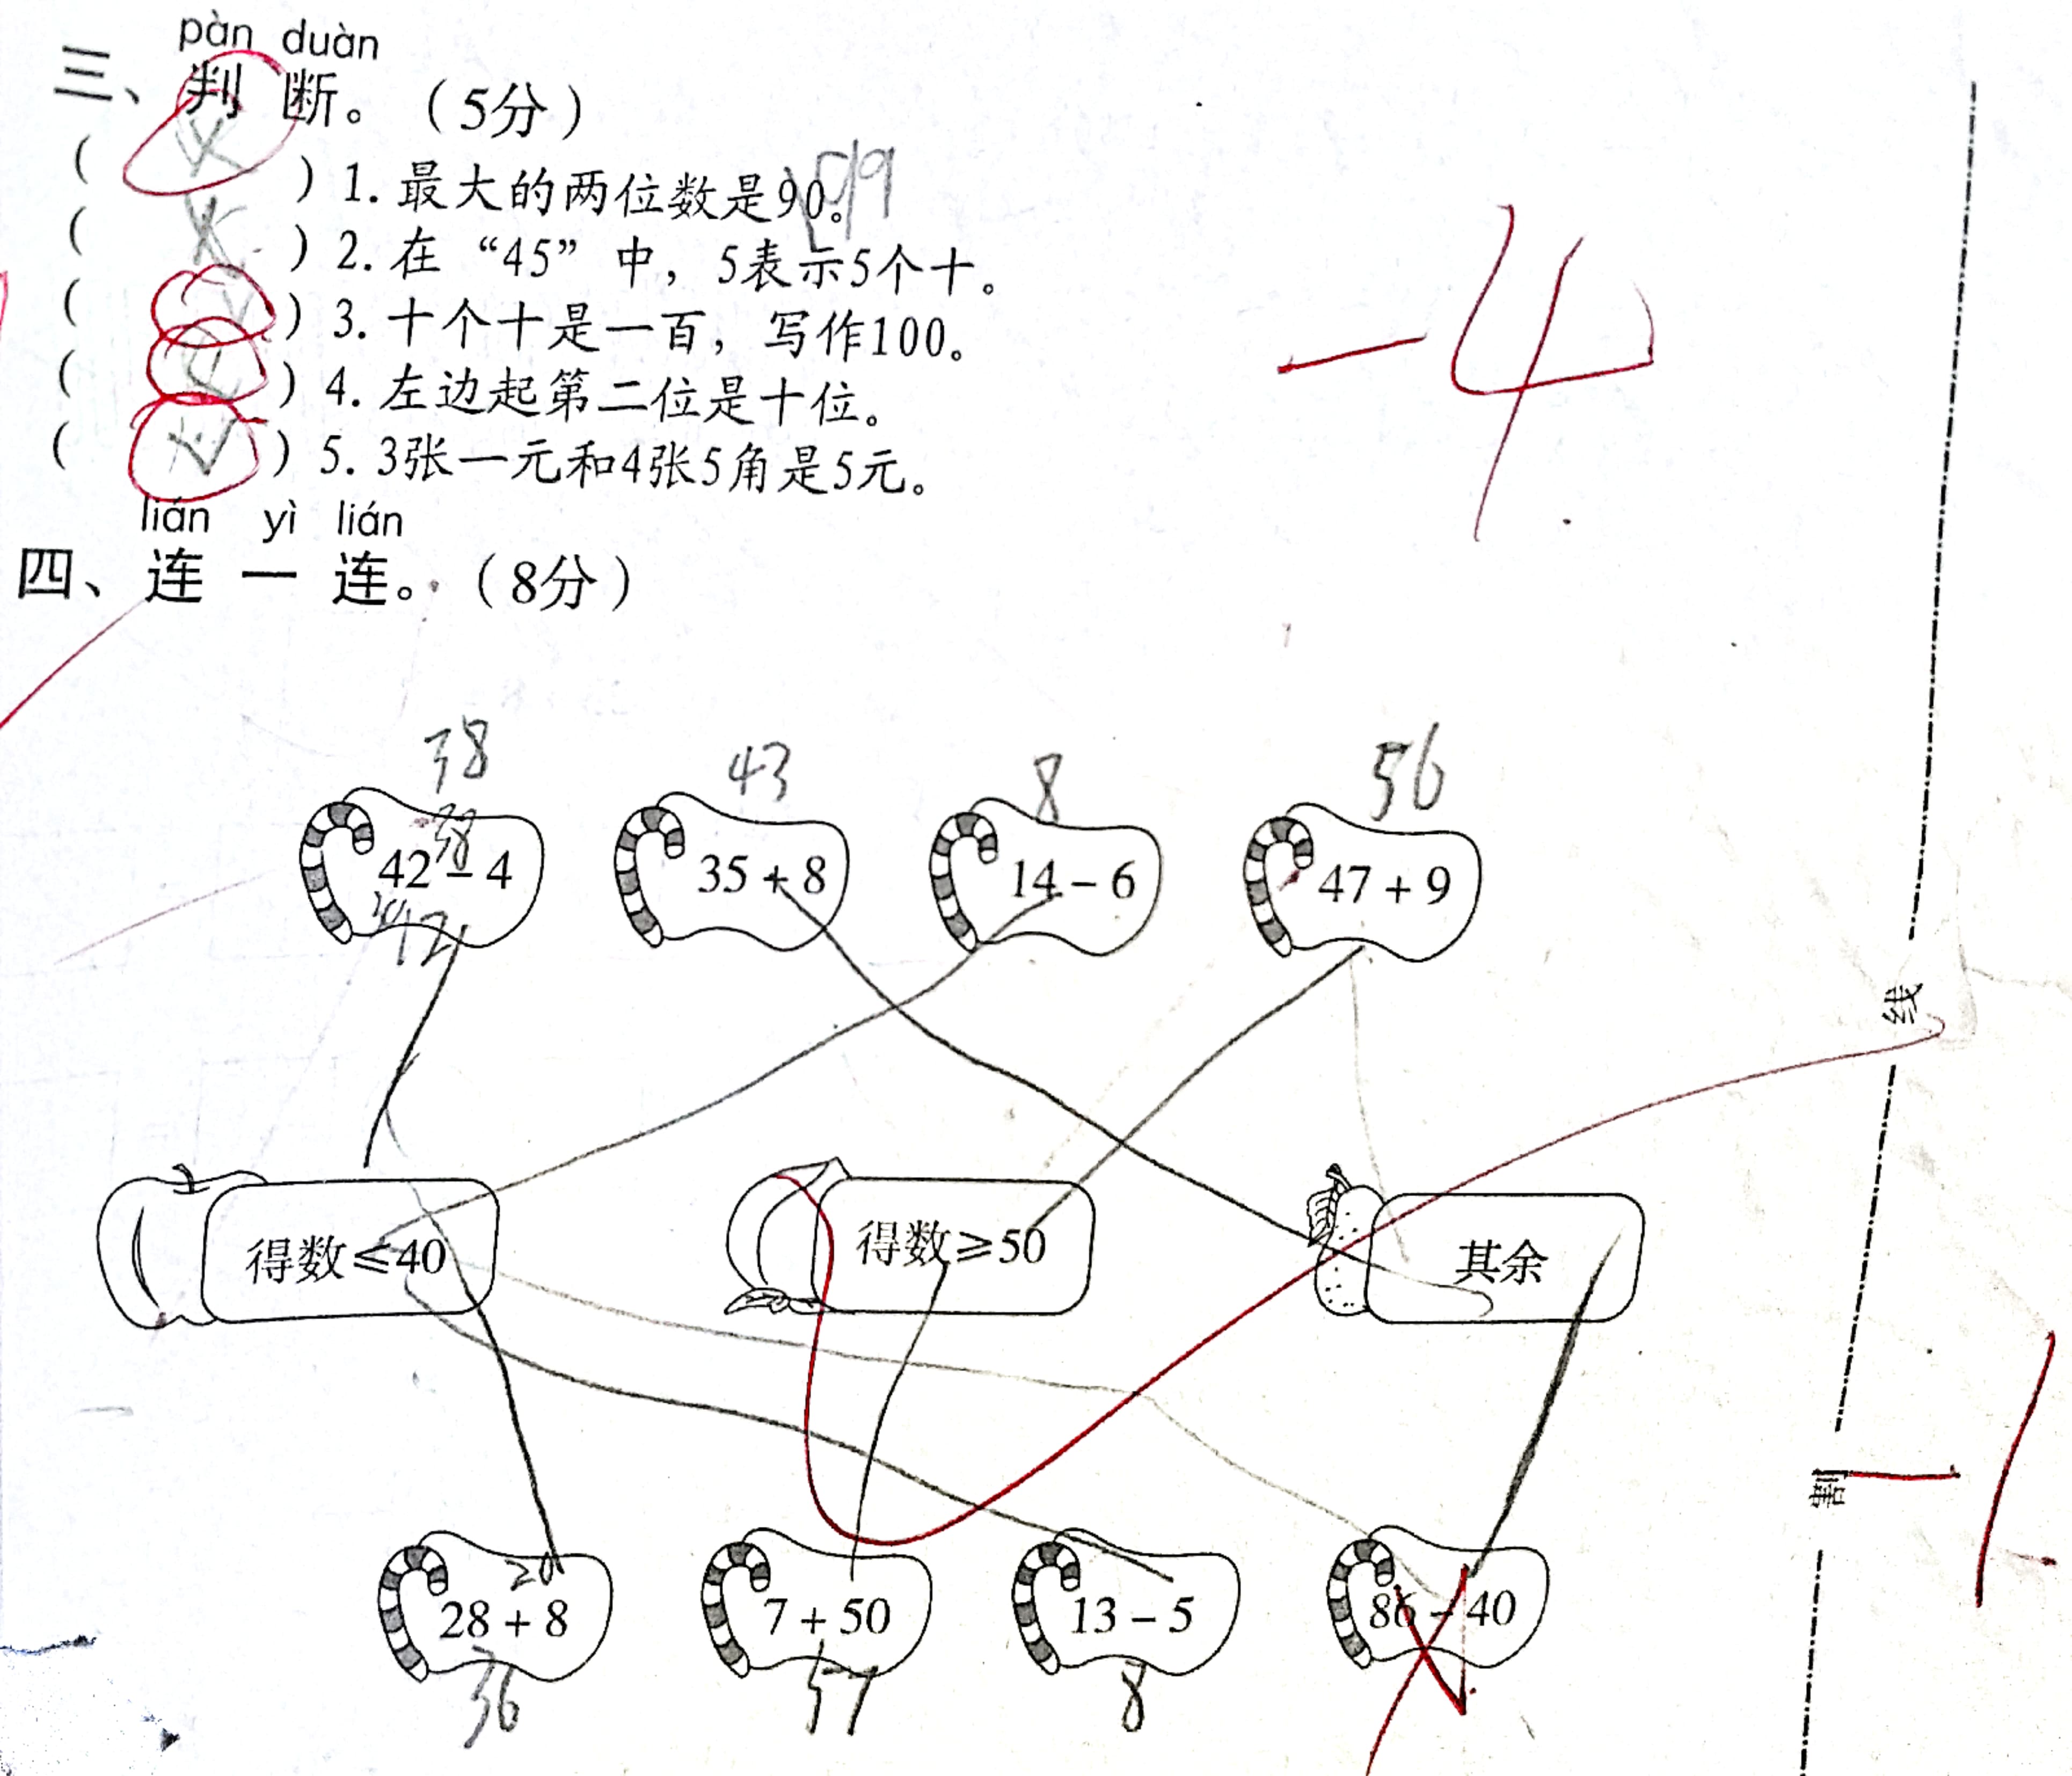 pàn duàn
三、判断。（5分）
（ × ）1. 最大的两位数是90。99
（ × ）2. 在“45”中，5表示5个十。
（ ）3. 十个十是一百，写作100。
（ ）4. 左边起第二位是十位。
（ √ ）5. 3张一元和4张5角是5元。
-4
lián yì lián
四、连一连。（8分）
38 43 8 56
38
42－4 35＋8 14－6 47＋9
42
线
得数≤40 得数≥50 其余
割 -1
20
28＋8 7＋50 13－5 86－40
36 57 8